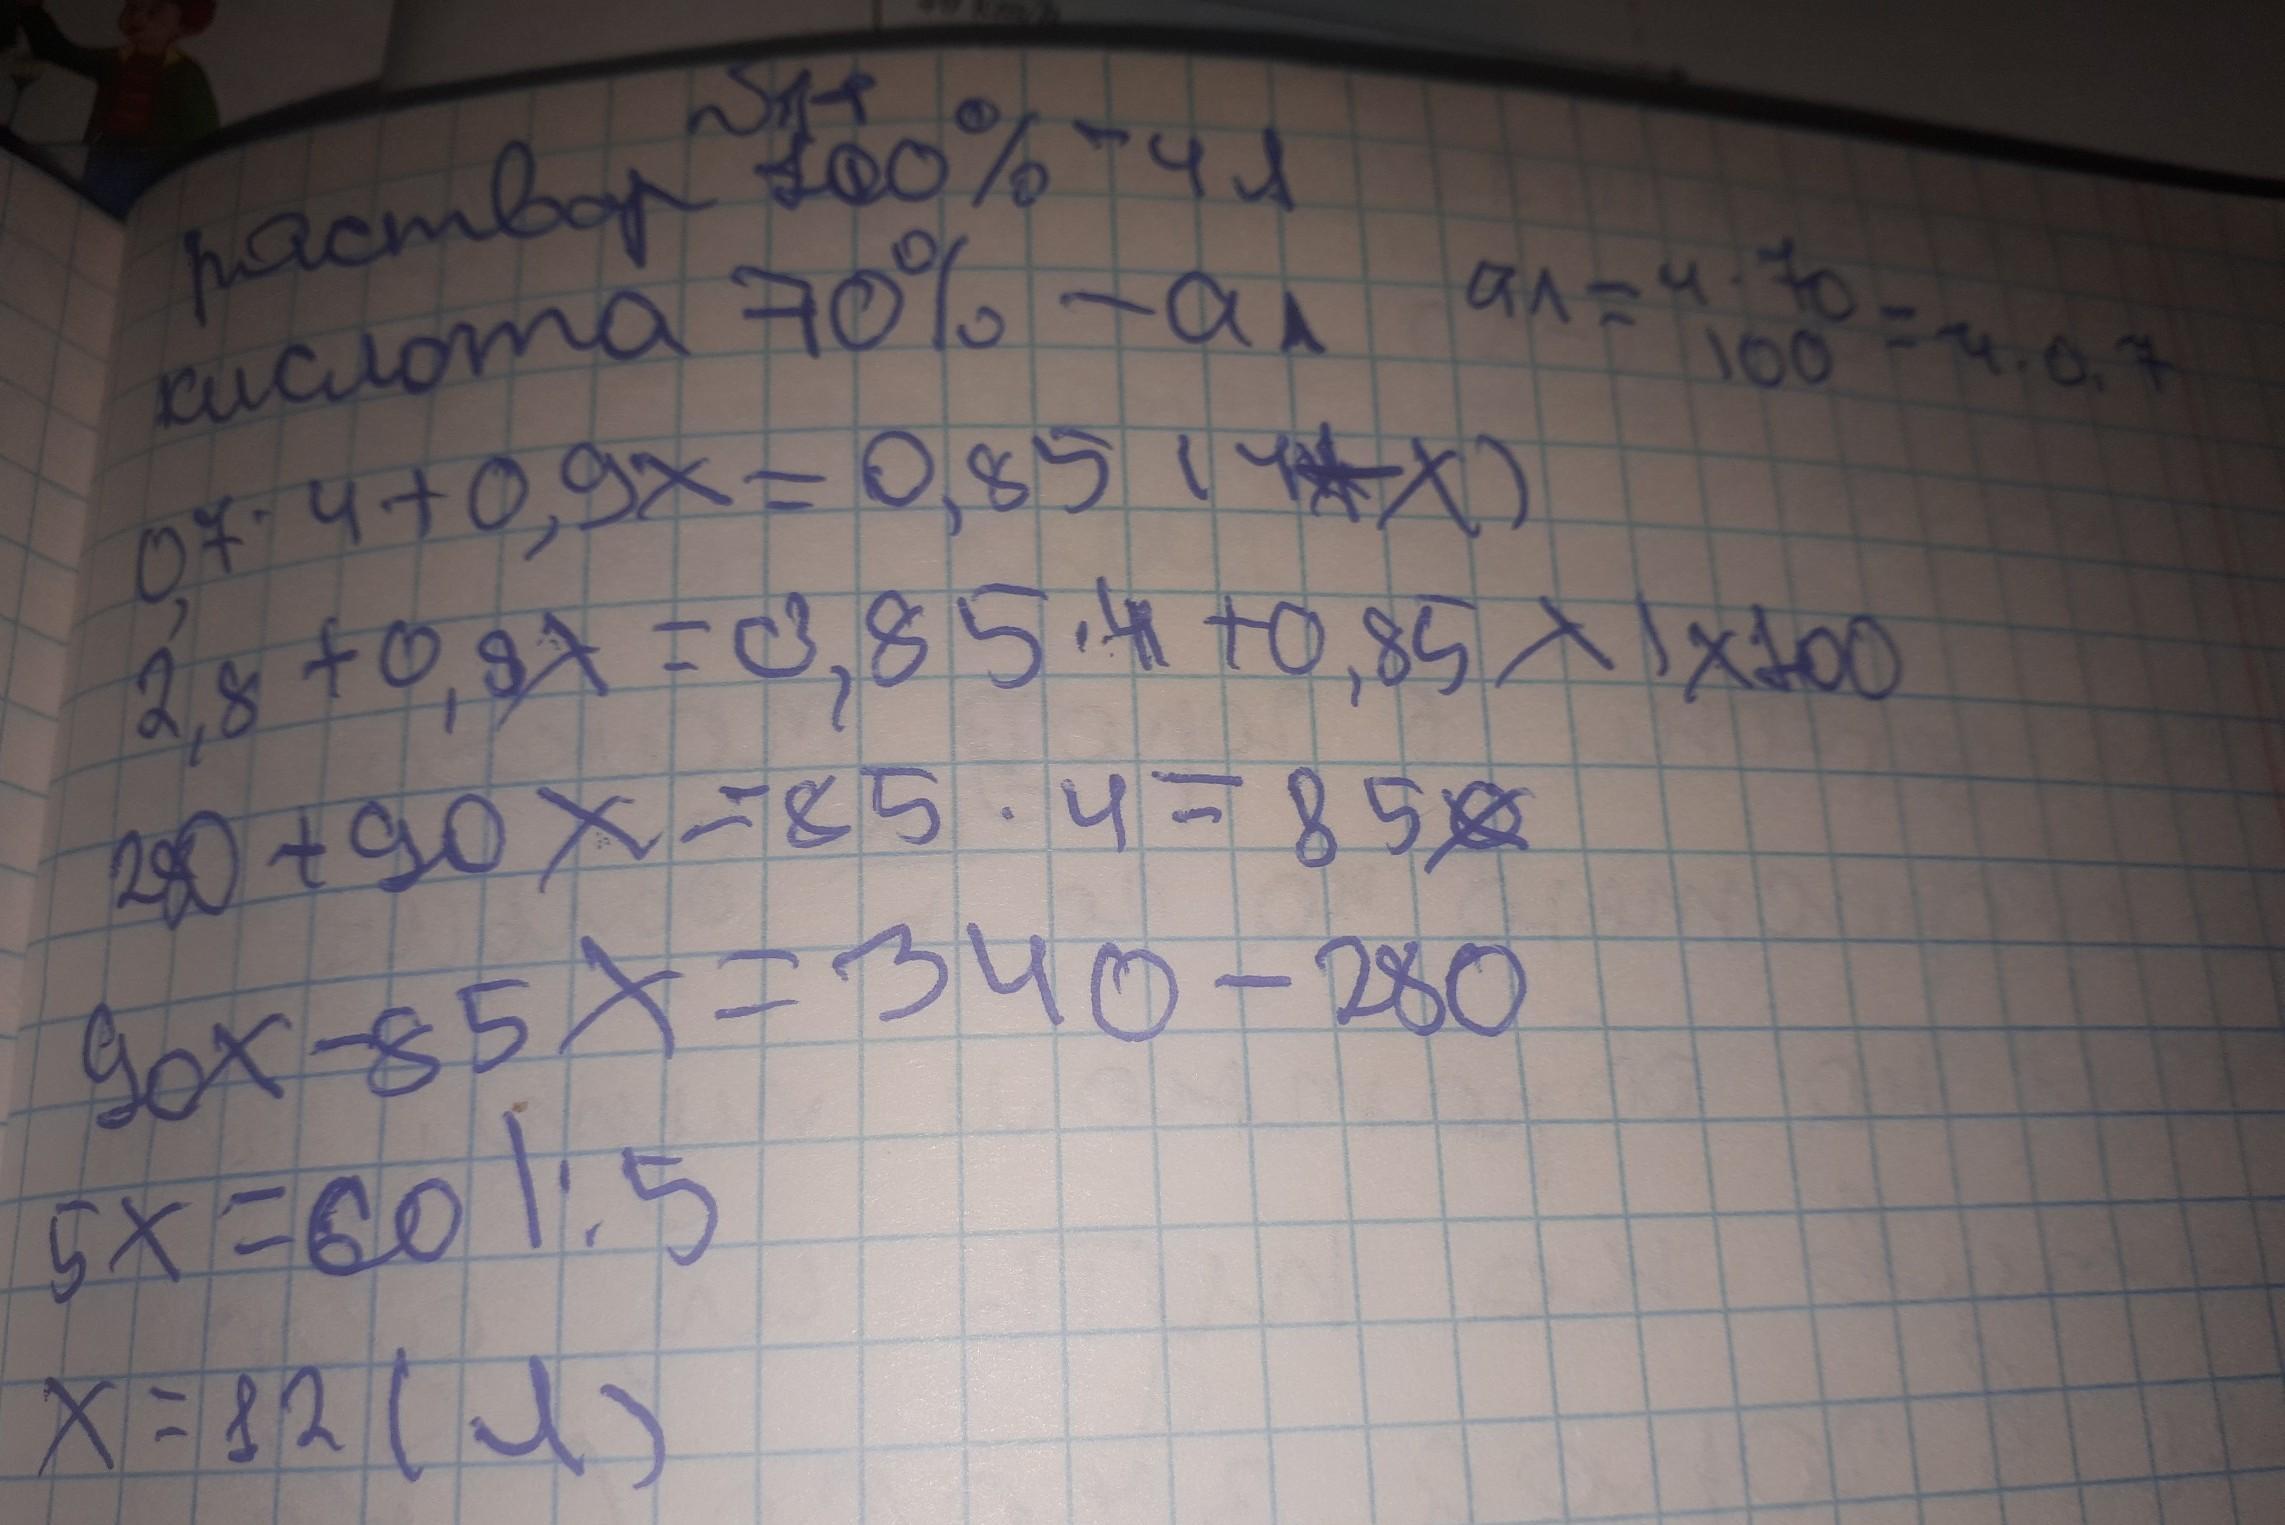 раствор 100% - 4 л
кислота 70% - а л
ал = 4·70/100 = 4·0,7
0,7·4+0,9x=0,85(4+x)
2,8+0,9x=0,85·4+0,85x | x100
280+90x=85·4=85x
90x-85x=340-280
5x=60 |:5
x=12 (л)